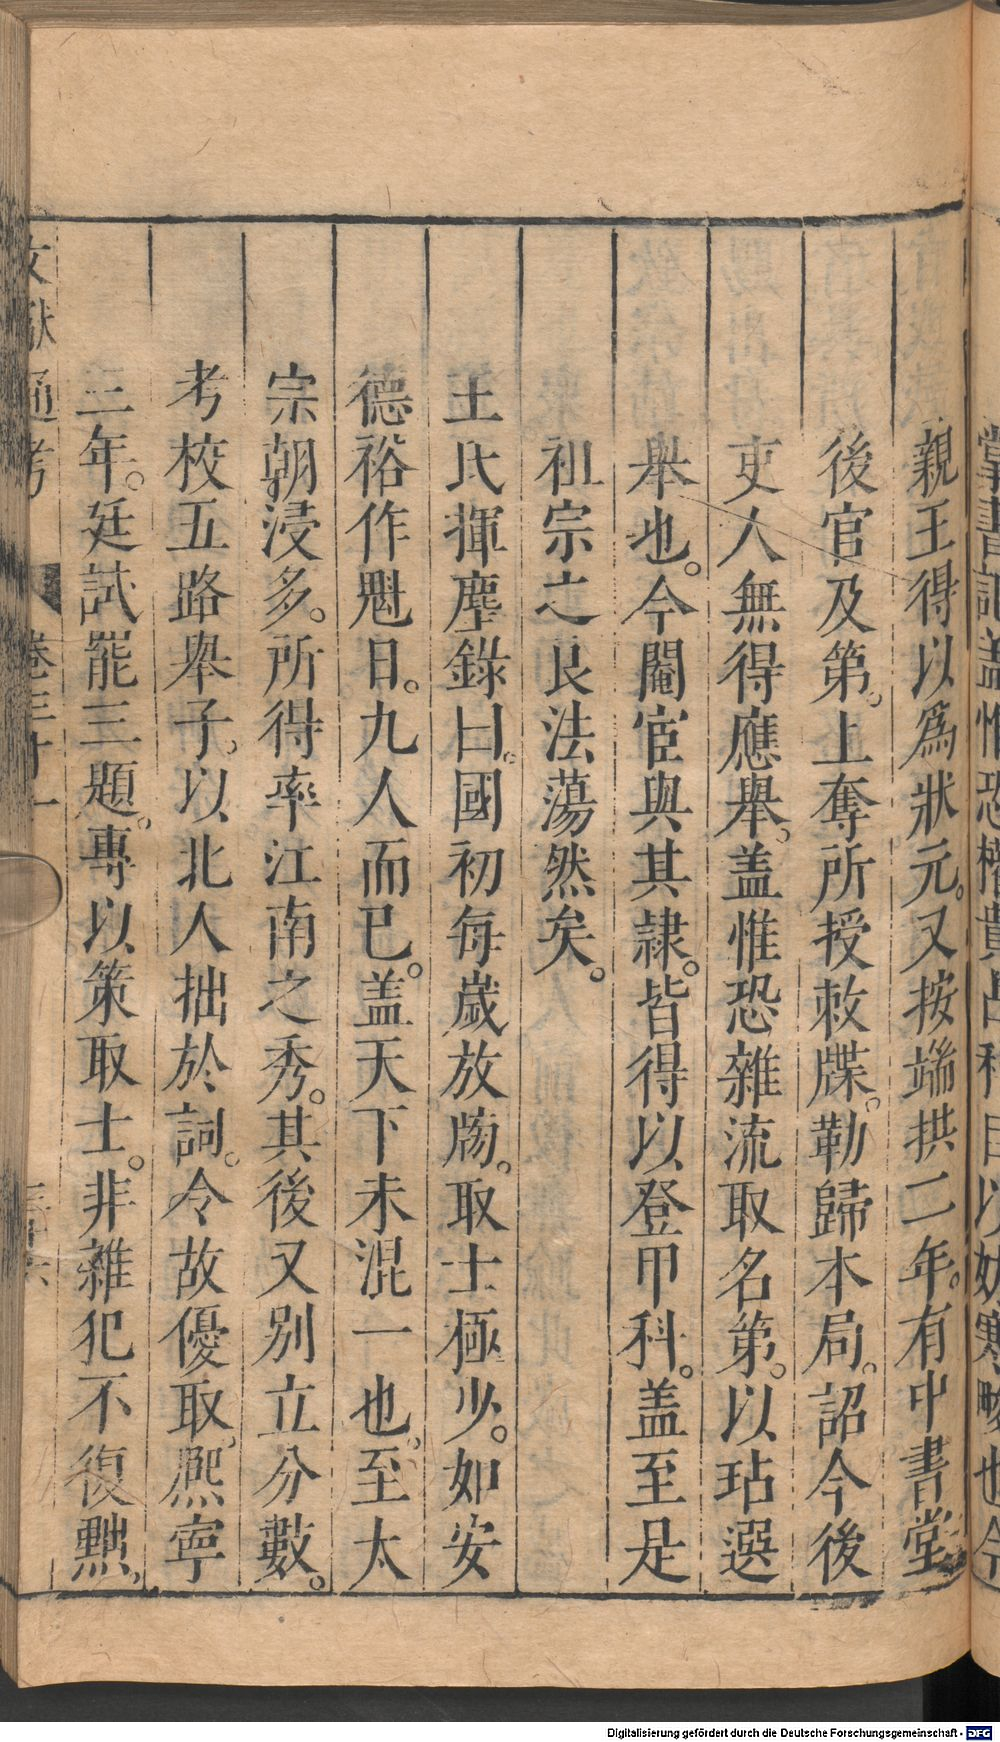 親王得以爲狀元。又按端拱二年。有中書堂
後官及第。上奪所授敕牒。勒歸本局。詔今後
吏人無得應舉。蓋惟恐雜流取名第。以玷選
舉也。今閹宦與其隸。皆得以登甲科。蓋至是
祖宗之良法蕩然矣。
王氏揮麈錄曰。國初每歲放牓。取士極少。如安
德裕作魁日。九人而已。蓋天下未混一也。至太
宗朝浸多。所得率江南之秀。其後又別立分數。
考校五路舉子。以北人拙於詞。令故優取。熙寧
三年。廷試罷三題。專以策取士。非雜犯不復黜。
文獻通考 卷三十一
Digitalisierung gefördert durch die Deutsche Forschungsgemeinschaft - DFG